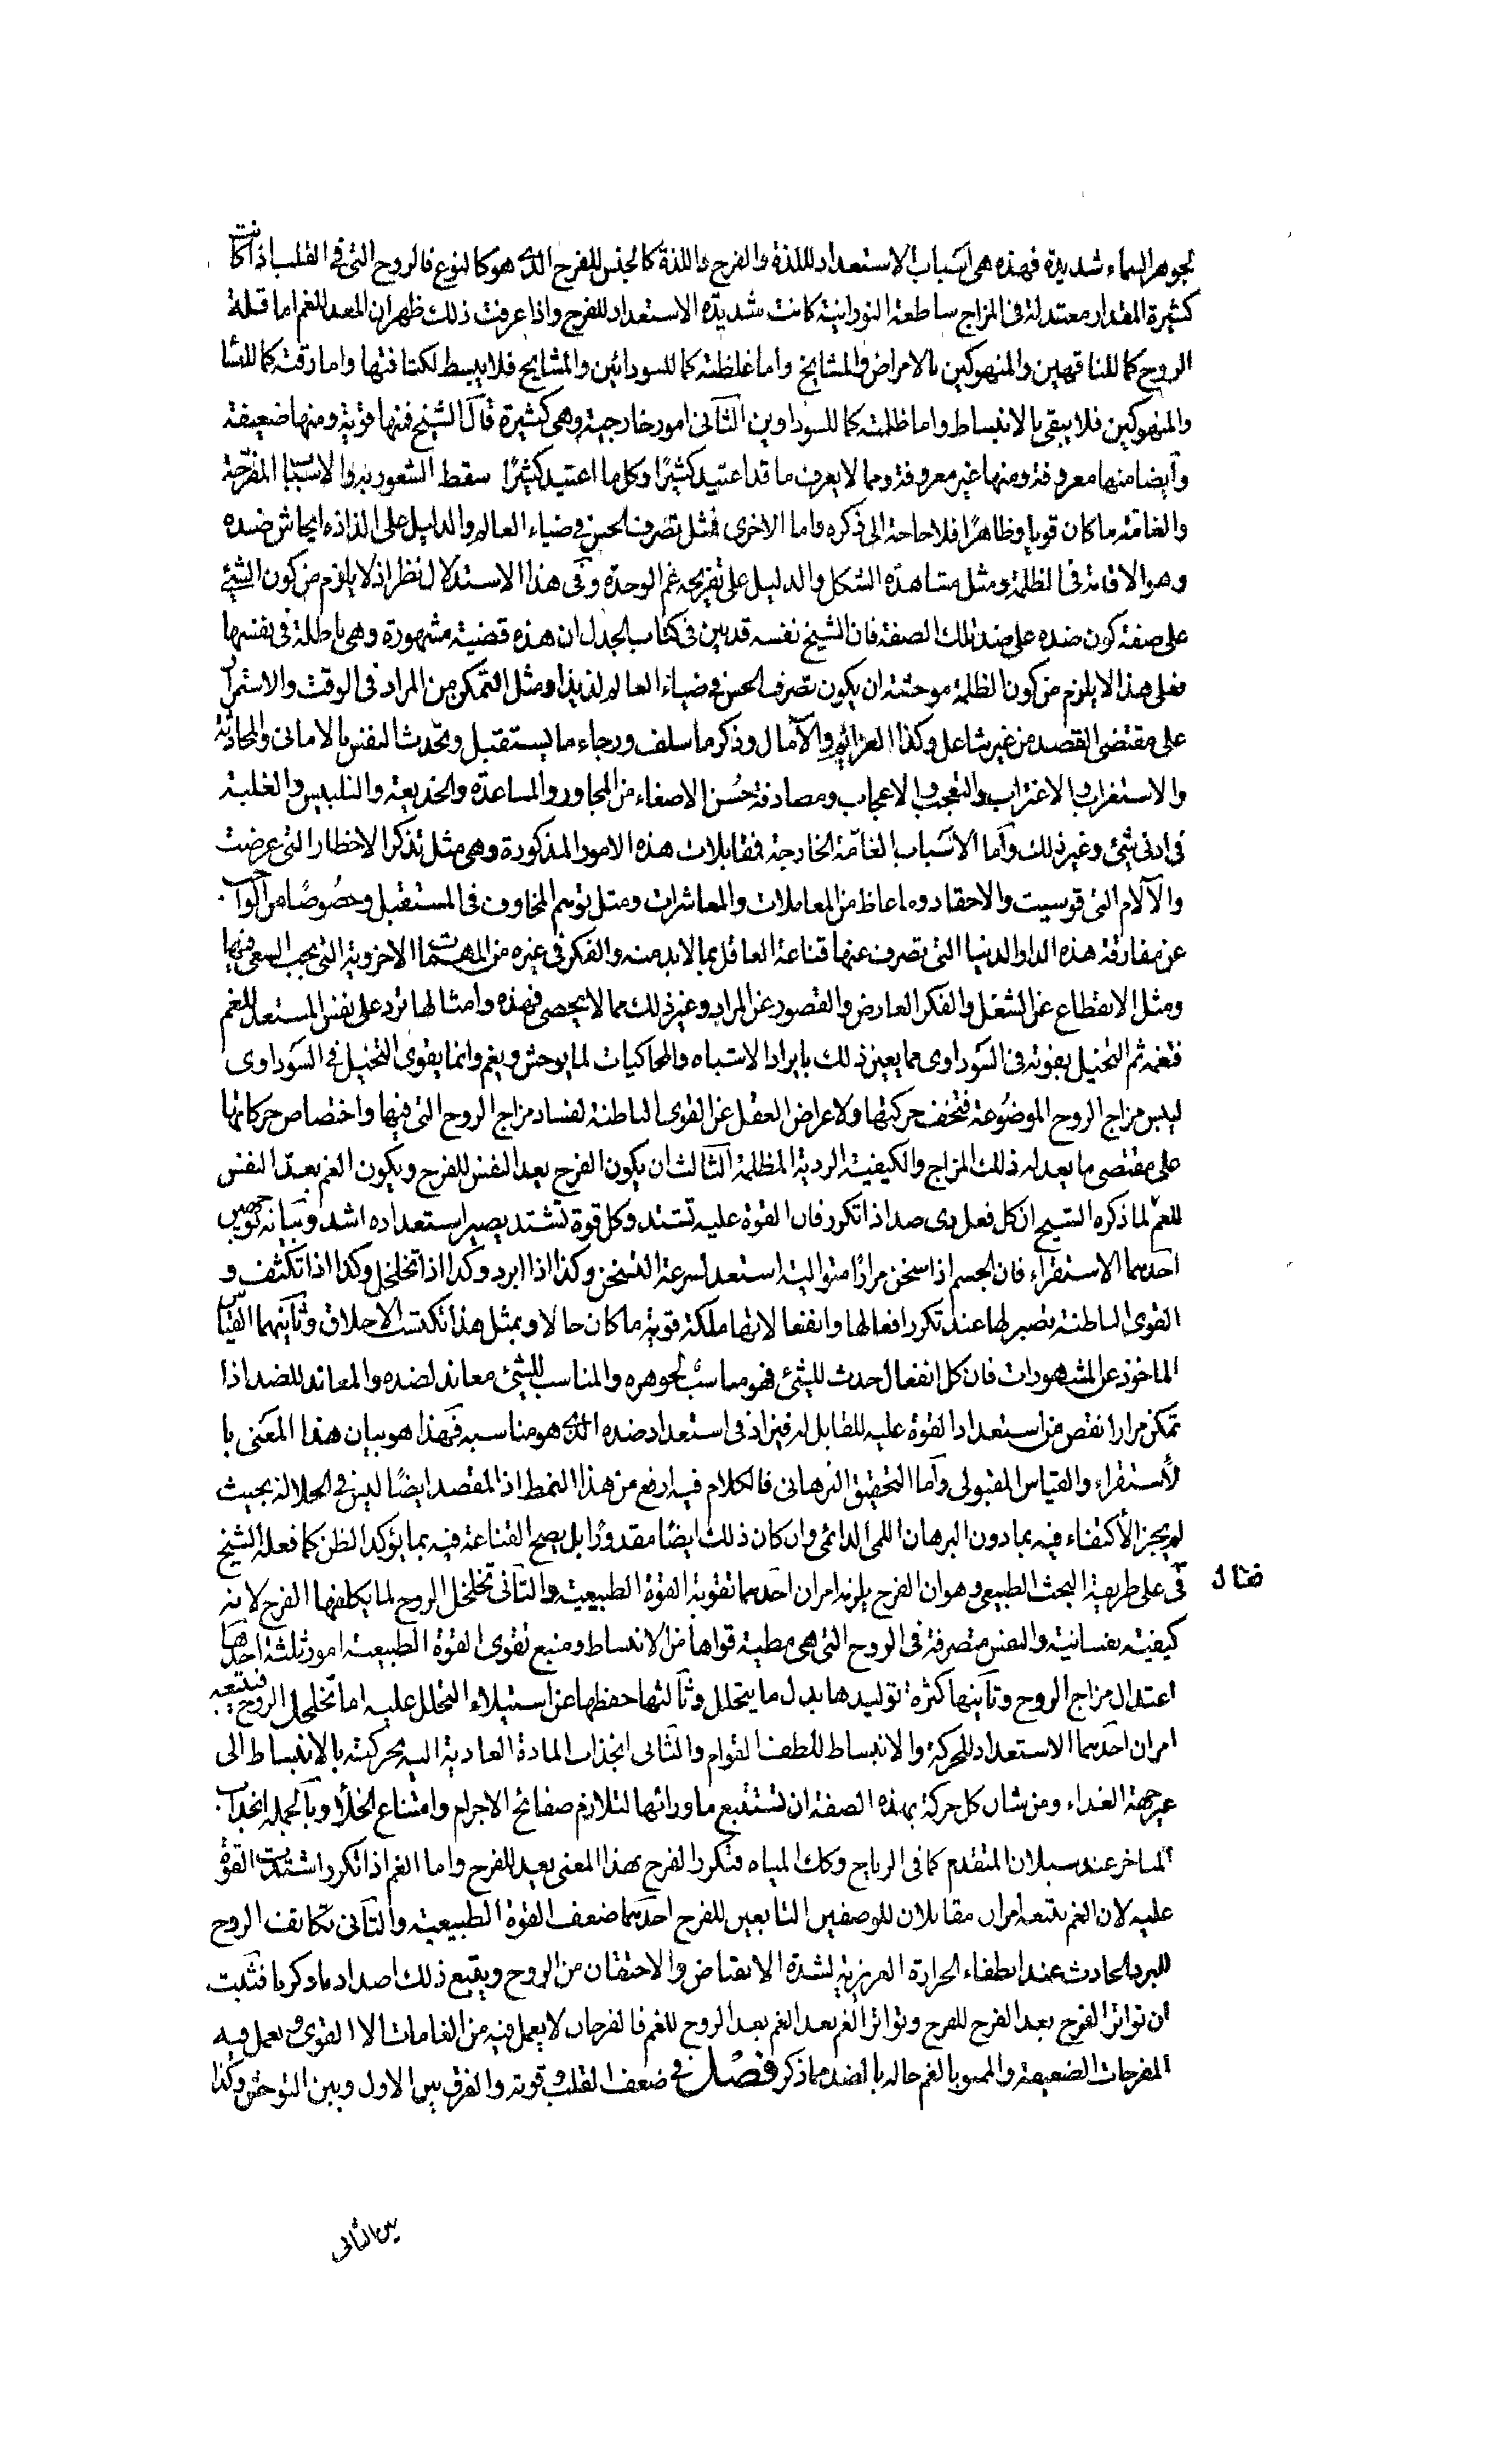 لجوهر السماء شديدة فهذه هى اسباب الاستعداد للذة والفرح واللذة كالجنس للفرح الذى هو كالنوع فالروح التى فى القلب اذا كانت
كثيرة المقدار معتدلة فى المزاج ساطعة النورانية كانت شديدة الاستعداد للفرح واذا عرفت ذلك ظهر ان المعد للغم اما قلة
الروح كما للناقهين والمنهوكين بالامراض والمشايخ واما غلظته كما للسودائين والمشايخ فلا ينبسط لكثافتها واما رقته كما للنسا
والمنهوكين فلا يبقى بالانبساط واما ظلمته كما للسوداوين الثانى امور خارجية وهى كثيرة قال الشيخ فمنها قوية ومنها ضعيفة
وايضا منها معروفة ومنها غير معروفة ومما لا يعرف ما قد اعتيد كثيرًا وكل ما اعتيد كثيرًا سقط الشعور به والاسباب المفرحة
والغامة ما كان قويا وظاهرًا فلا حاجة الى ذكره واما الاخرى فمثل تصرف الحس فى ضياء العالم والدليل على الذاذه ايحاش ضده
وهو الاقامة فى الظلمة ومثل مشاهدة الشكل والدليل على تفريحه غم الوحدة وفى هذا الاستدلال نظر اذ لا يلزم من كون الشئ
على صفة كون ضده على ضد تلك الصفة فان الشيخ نفسه قد بين فى كتاب الجدل ان هذه قضية مشهورة وهى باطلة فى نفسها
فعلى هذا لا يلزم من كون الظلمة موحشة ان يكون تصرف الحس فى ضياء العالم لذيذا ومثل التمكن من المراد فى الوقت والاستمرار
على مقتضى القصد من غير شاغل وكذا العزائم والآمال وذكر ما سلف ورجاء ما يستقبل وتحدث النفس بالامانى والمحادثة
والاستغراب والاغتراب والتعجب والاعجاب ومصادفة حُسن الاصغاء من المجاور والمساعدة والخديعة والتلبيس والغلبة
فى ادنى شئ وغير ذلك واما الاسباب الغامة الخارجة فمقابلات هذه الامور المذكورة وهى مثل تذكر الاخطار التى عرضت
والآلام التى قوسيت والاحقاد وما غاظ من المعاملات والمعاشرات ومثل توهم المخاوف فى المستقبل وخصوصًا من الواجب
عن مفارقة هذه الدار الدنيا التى تصرف عنها قناعة العاقل بما لابد منه والفكر فى غيره من المهمات الاخروية التى يجب السعى فيها
ومثل الانقطاع عن الشغل والفكر العارض والقصور عن المراد وغير ذلك مما لا يحصى فهذه وامثالها ترد على نفس المستعد للغم
فتغمه ثم التخيل بقوته فى السوداوى مما يعين ذلك بايراد الاشباه والمحاكيات لما يوحش ويغم وانما يقوى التخيل فى السوداوى
ليبس مزاج الروح الموضوعة فتخف حركتها ولاعراض العقل عن القوى الباطنة لفساد مزاج الروح التى فيها واختصاص حركاتها
على مقتضى ما يعد له ذلك المزاج والكيفية الردية المظلمة الثالث ان يكون الفرح يعد النفس للفرح ويكون الغم يعد النفس
للغم لما ذكره الشيخ ان كل فعل ذى ضد اذا تكرر فان القوة عليه تشتد وكل قوة تشتد يصير استعداده اشد وبيانه بوجهين
احدهما الاستقراء فان الجسم اذا سخن مرارًا متوالية استعد لسرعة التسخن وكذا اذا ابرد وكذا اذا تخلخل وكذا اذا تكثف و
القوى الباطنة يصير لها عند تكرر افعالها وانفعالاتها ملكة قوية ما كان حالا وبمثل هذا تكتسب الاخلاق وثانيهما القياس
الماخوذ عن المشهورات فان كل انفعال حدث للشئ فهو مناسب لجوهره والمناسب للشئ معاند لضده والمعاند للضد اذا
تمكن مرارا نقص من استعداد القوة عليه للمقابل له فيزاد فى استعداد ضده الذى هو مناسبه فهذا هو بيان هذا المعنى با
لأستقراء والقياس المقبولى واما التحقيق البرهانى فالكلام فيه ارفع من هذا النمط اذ المقصد ايضًا ليس فى الجلالة بحيث
لم يجز الأكتفاء فيه بما دون البرهان اللمى الدائمى وان كان ذلك ايضًا مقدورًا بل يصح القناعة فيه بما يؤكد الظن كما فعله الشيخ
فى على طريقة البحث الطبيعى وهو ان الفرح يلزمه امران احدهما تقوية القوة الطبيعية والثانى تخلخل الروح لما يكلفها الفرح لانه
فقال
كيفية نفسانية والنفس متصرفة فى الروح التى هى مطية قواها من الانبساط ومنبع تقوى القوة الطبيعية امور ثلثة احدها
اعتدال مزاج الروح وثانيها كثرة توليدها بدل ما يتحلل وثالثها حفظها عن استيلاء التحلل عليه اما تخلخل الروح فيتبعه
امران احدهما الاستعداد للحركة والانبساط للطف القوام والثانى انجذاب المادة الغادية اليه بحركته بالانبساط الى
غير جهة الغذاء ومن شان كل حركة بهذه الصفة ان تستتبع ما ورائها لتلازم صفائح الاجرام وامتناع الخلأ وبالجملة انجذاب
المتاخر عند سيلان المتقدم كما فى الرياح وكذلك المياه فتكرر الفرح بهذا المعنى يعيد للفرح واما الغم اذا تكرر اشتدت القوة
عليه لان الغم يتبعه امران مقابلان للوصفين التابعين للفرح احدهما ضعف القوة الطبيعية والثانى تكاثف الروح
للبرد الحادث عند انطفاء الحرارة الغريزية لشدة الانقباض والاحتقان من الروح ويتبع ذلك اضداد ما ذكرنا فثبت
ان تواتر الفرح يعد الفرح للفرح وتواتر الغم يعد الغم يعد الروح للغم فالفرحان لا يعمل فيه من الغامات الا القوى ويعمل فيه
المفرحات الضعيفة والممنو بالغم حاله بالضد مما ذكر فصل فى ضعف القلب وقوته والفرق بين الاول وبين التوحش وكذا
بين الثانى